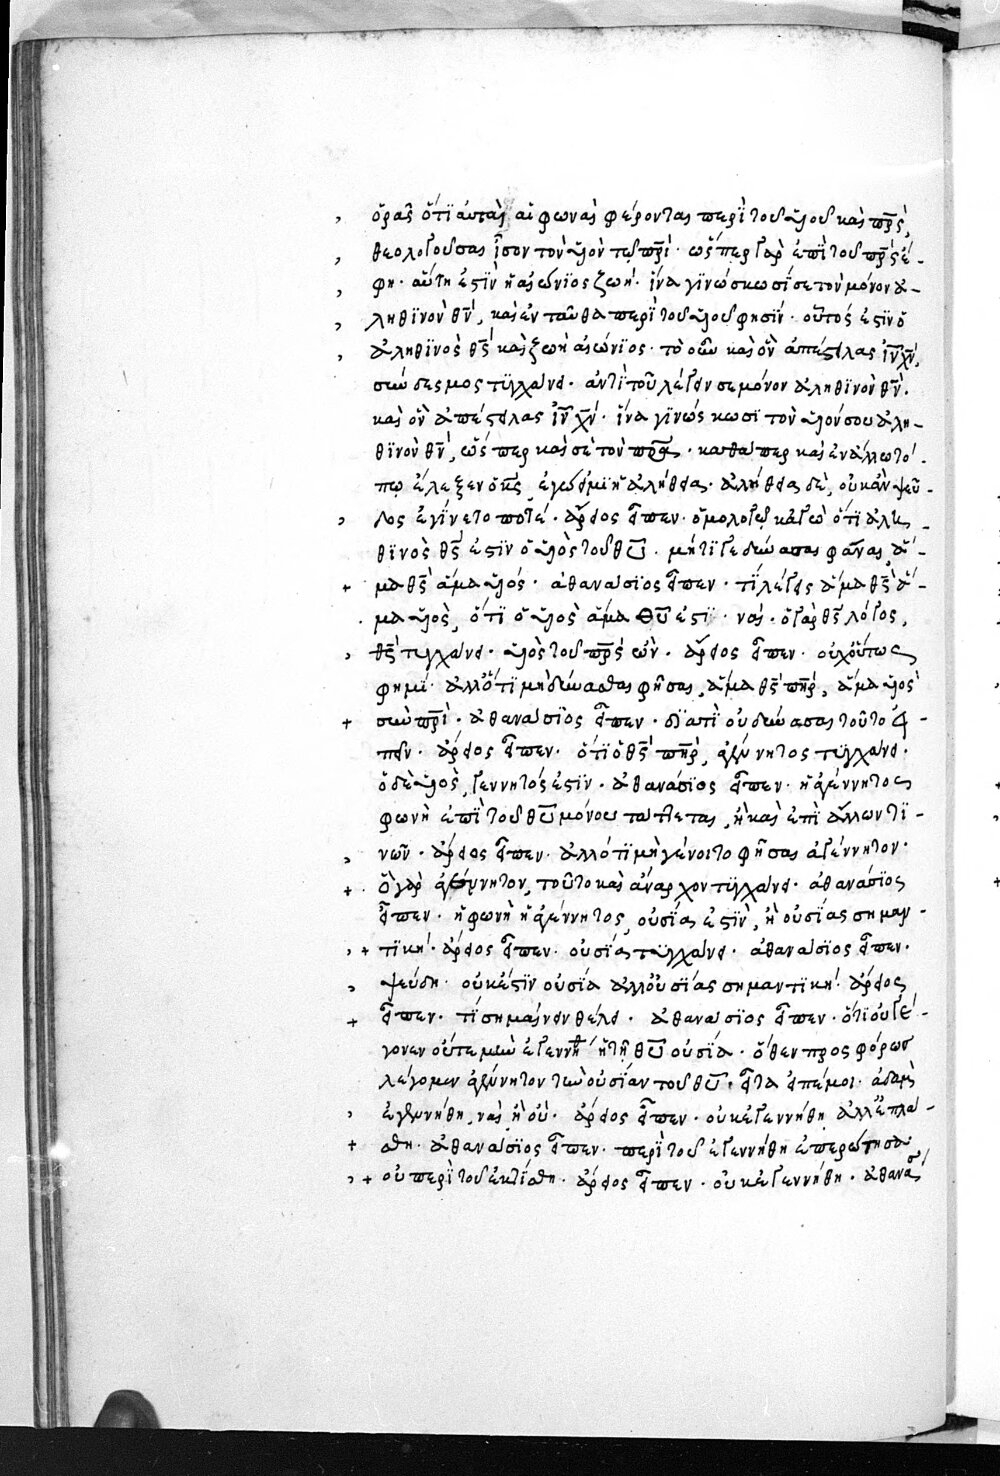 ὅρα ὅτι αὗται αἱ φωναὶ φέρονται περὶ τοῦ υἱοῦ καὶ πρς,
θεολογοῦσαι ἶσον τὸν υἱὸν τῷ πρὶ· ὥσπερ γὰρ ἐπὶ τοῦ πρς ἔ-
φη· αὕτη ἐστὶν ἡ αἰώνιος ζωή· ἵνα γινώσκωσί σε τὸν μόνον ἀ-
ληθινὸν θν, καὶ ἐνταῦθα περὶ τοῦ υἱοῦ φησίν· οὗτός ἐστιν ὁ
ἀληθινὸς θς καὶ ζωὴ αἰώνιος· τὸ οὖν καὶ ὃν ἀπέστειλας ιν χν,
σύνδεσμος τυγχάνει· ἀντὶ τοῦ λέγειν σε μόνον ἀληθινὸν θν·
καὶ ὃν ἀπέστειλας ιν χν· ἵνα γινώσκωσι τὸν υἱόν σου ἀλη-
θινὸν θν, ὥσπερ καὶ σὲ τὸν πρα· καθάπερ καὶ ἐν ἄλλω τό-
πω ἔλεξεν ὁ κς, ἐγώ εἰμι ἡ ἀλήθεια· ἀλήθεια δὲ, οὐκ ἂν ψεῦ-
δος ἐγίνετο ποτέ· ἄρειος εἶπεν· ὁμολογῶ κἀγὼ ὅτι ἀλη-
θινὸς θς ἐστιν ὁ υἱὸς τοῦ θυ· μήτι γε δύνασαι φάναι, ἅ-
μα θς ἅμα υἱός· ἀθανάσιος εἶπεν· τί λέγεις ἅμα θς ἅ-
μα υἱὸς, ὅτι ὁ υἱὸς ἅμα θυ ἐστι· ναί· ὁ γὰρ θς λόγος,
θς τυγχάνει· υἱὸς τοῦ πρς ὤν· ἄρειος εἶπεν· οὐχ οὕτως
φημί· ἀλλ' ὅτι μὴ δύνασθαι φῆσαι, ἅμα θς πηρ, ἅμα υἱὸς
σὺν πρι· ἀθανάσιος εἶπεν· διατί οὐ δύνασαι τοῦτο εἰ-
πεῖν· ἄρειος εἶπεν· ὅτι ὁ θς πηρ, ἀγέννητος τυγχάνει·
ὁ δὲ υἱὸς, γεννητός ἐστιν· ἀθανάσιος εἶπεν· ἡ ἀγέννητος
φωνὴ ἐπὶ τοῦ θυ μόνου τάττεται, ἢ καὶ ἐπὶ ἄλλων τι-
νῶν· ἄρειος εἶπεν· ἀλλό τι μὴ γένοιτο φῆσαι ἀγέννητον·
ὃ γὰρ ἀγέννητον, τοῦτο καὶ ἄναρχον τυγχάνει· ἀθανάσιος
εἶπεν· ἡ φωνὴ ἡ ἀγέννητος, οὐσία ἐστὶν, ἢ οὐσίας σημαν-
τική· ἄρειος εἶπεν· οὐσία τυγχάνει· ἀθανάσιος εἶπεν·
ψεύδη· οὐκ ἔστιν οὐσία ἀλλ' οὐσίας σημαντική· ἄρειος
εἶπεν· τί σημαίνειν θέλει· ἀθανάσιος εἶπεν· ὅτι οὐ γέ-
γονεν οὔτε μὴν ἐγεννήθ ἡ τῆ θυ οὐσία· ὅθεν προσφόρως
λέγομεν ἀγέννητον τὴν οὐσίαν τοῦ θυ· εἶτα εἰπέ μοι· ἀδὰμ
ἐγεννήθη, ναὶ ἢ οὔ· ἄρειος εἶπεν· οὐκ ἐγεννήθη ἀλλ' ἐπλά-
σθη· ἀθανάσιος εἶπεν· περὶ τοῦ ἐγεννήθη ἐπερώτησα
οὐ περὶ τοῦ ἐκτίσθη· ἄρειος εἶπεν· οὐκ ἐγεννήθη· ἀθανάσ